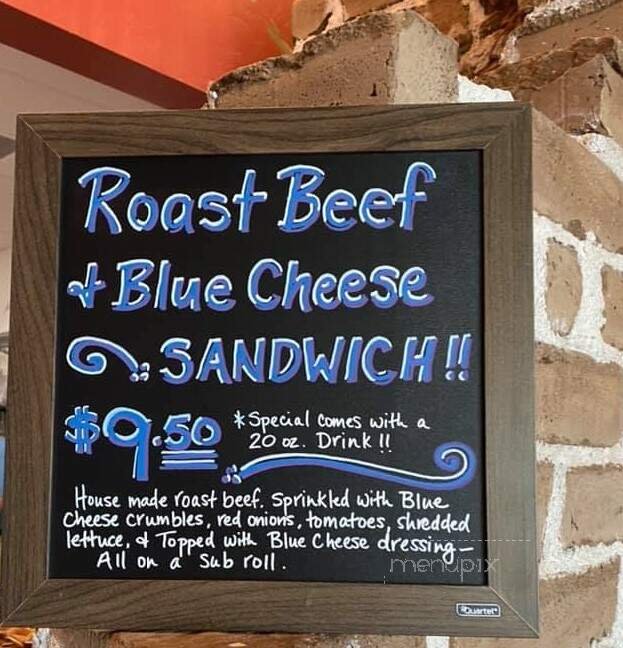 Roast Beef
& Blue Cheese
SANDWICH!!
$9.50
*Special comes with a
20 oz. Drink!!
House made roast beef. Sprinkled with Blue
Cheese crumbles, red onions, tomatoes, shredded
lettuce, & Topped with Blue Cheese dressing—
All on a sub roll.
menupix
Quartet